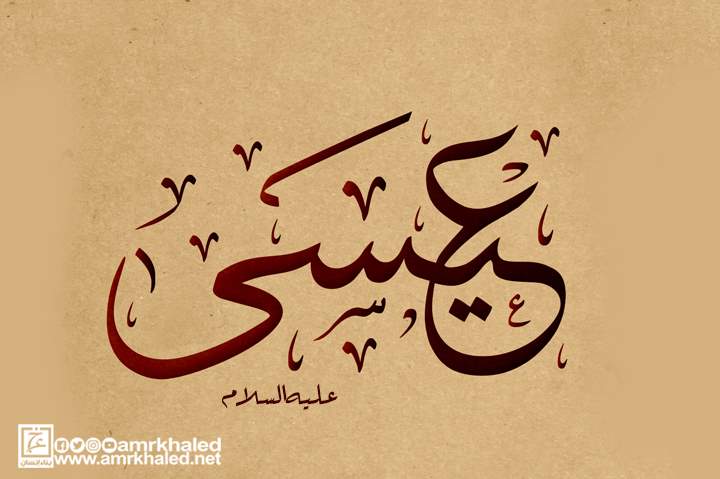 عيسى
عليه السلام
amrkhaled
www.amrkhaled.net